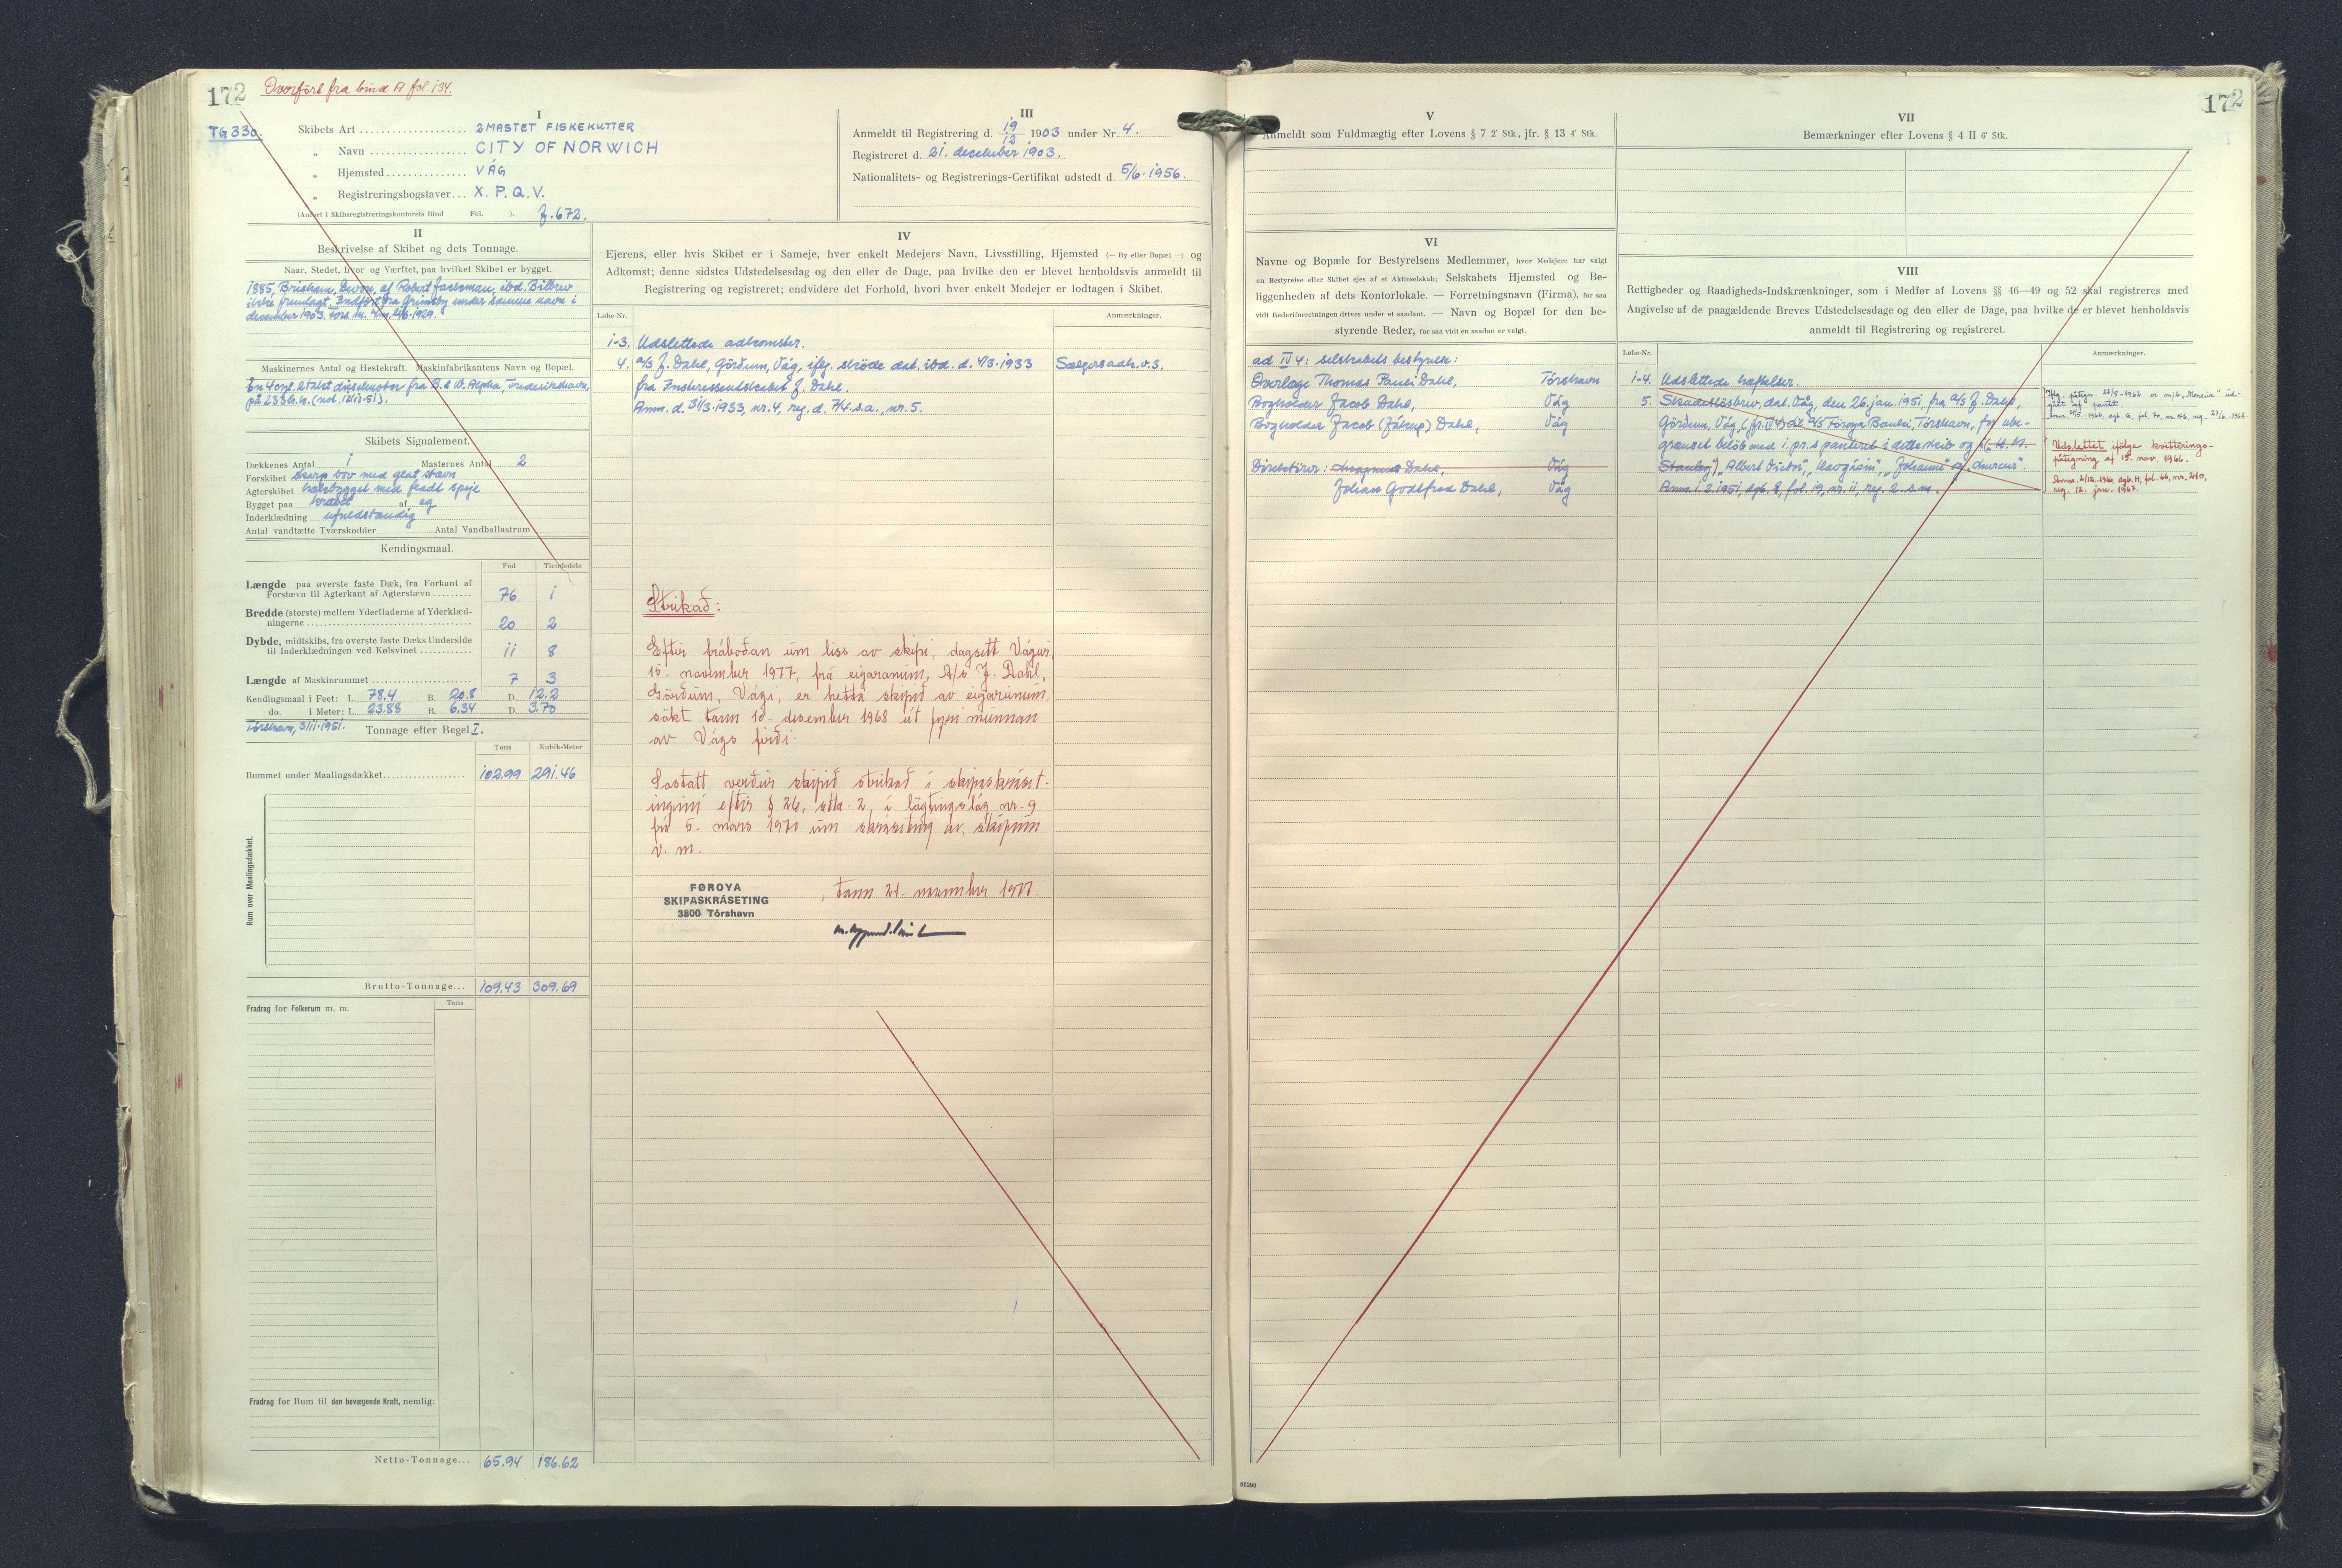 172
Overført fra bind A fol. 134.
TG 330.
I
Skibets Art 2MASTET FISKEKUTTER
„ Navn CITY OF NORWICH
„ Hjemsted VÁG
„ Registreringsbogstaver X. P. Q. V.
(Anført i Skibsregistreringskontorets Bind Fol. ). f. 672.
III
Anmeldt til Registrering d. 19/12 1903 under Nr. 4.
Registreret d. 21. december 1903.
Nationalitets- og Registrerings-Certifikat udstedt d. 5/6. 1956.
II
Beskrivelse af Skibet og dets Tonnage.
Naar, Stedet, hvor og Værftet, paa hvilket Skibet er bygget.
1885, Brixham, Devon, af Robert Jackman, ibd. Bilbrev
ikke fremlagt. Indført fra Grimsby under samme navn i
december 1903.
Maskinernes Antal og Hestekraft. Maskinfabrikantens Navn og Bopæl.
Én 4cyl. 2takt dieselmotor fra B. & W. Alpha, Frederikshavn,
på 233 h.k. (
Skibets Signalement.
Dækkenes Antal 1 Masternes Antal 2
Forskibet skarp bov med glat stævn
Agterskibet hækbygget med fladt spejl
Bygget paa kravel af eg
Inderklædning ufuldstændig
Antal vandtætte Tværskodder Antal Vandballastrum
Kendingsmaal.
Fod Tiendedele
Længde paa øverste faste Dæk, fra Forkant af
Forstævn til Agterkant af Agterstævn 76 1
Bredde (største) mellem Yderfladerne af Yderklæd-
ningerne 20 2
Dybde, midtskibs, fra øverste faste Dæks Underside
til Inderklædningen ved Kølsvinet 11 8
Længde af Maskinrummet 7 3
Kendingsmaal i Feet: L. 78.4 B. 20.8 D. 12.2
do. i Meter: L. 23.88 B. 6.34 D. 3.70
Tórshavn, 3/11. 1951. Tonnage efter Regel I.
Tons Kubik-Meter
Rummet under Maalingsdækket 102.99 291.46
Rum over Maalingsdækket.
Brutto-Tonnage... 109.43 309.69
Fradrag for Folkerum m. m. Tons
Fradrag for Rum til den bevægende Kraft, nemlig:
Netto-Tonnage... 65.94 186.62
IV
Ejerens, eller hvis Skibet er i Sameje, hver enkelt Medejers Navn, Livsstilling, Hjemsted (— By eller Bopæl —) og
Adkomst; denne sidstes Udstedelsesdag og den eller de Dage, paa hvilke den er blevet henholdsvis anmeldt til
Registrering og registreret; endvidere det Forhold, hvori hver enkelt Medejer er lodtagen i Skibet.
Løbe-Nr. Anmærkninger.
1-3. Udslettede adkomster.
4. A/S J. Dahl, Görðum, Vág, iflg. skøde dat. ibd. d. 4/3. 1933 Sælgers adk. o.s.
fra Interessentskabet J. Dahl.
Anm. d. 31/3. 1933, nr. 4, reg. d. 7/4. s.a., nr. 5.
Strikað:
Eftir fráboðan um liss av skipi, dagsett Vágur,
15. november 1977, frá eigaranum, A/S J. Dahl,
Görðum, Vági, er hetta skipið av eigarunum
søkt tann 18. desember 1968 út fyri munnan
av Vágs firði.
Sostatt verður skipið strikað í skipaskráset-
ingini eftir § 26, stk. 2, í løgtingslóg nr. 9
frá 5. mars 1970 um skráseting av skipum
v. m.
FØROYA
SKIPASKRÁSETING
3800 Tórshavn
, tann 21. november 1977.
V
Anmeldt som Fuldmægtig efter Lovens § 7 2' Stk., jfr. § 13 4' Stk.
VI
Navne og Bopæle for Bestyrelsens Medlemmer, hvor Medejere har valgt
en Bestyrelse eller Skibet ejes af et Aktieselskab; Selskabets Hjemsted og Be-
liggenheden af dets Kontorlokale. — Forretningsnavn (Firma), for saa
vidt Rederiforretningen drives under et saadant. — Navn og Bopæl for den be-
styrende Reder, for saa vidt en saadan er valgt.
ad IV 4: selskabets bestyrelse:
Overlæge Thomas Pauli Dahl, Tórshavn
Bogholder Jacob Dahl, Vág
Bogholder Jacob (Jákup) Dahl, Vág
Direktører: Magnus Dahl, Vág
Johan Godtfred Dahl, Vág
VII
Bemærkninger efter Lovens § 4 II 6' Stk.
172
VIII
Rettigheder og Raadigheds-Indskrænkninger, som i Medfør af Lovens §§ 46—49 og 52 skal registreres med
Angivelse af de paagældende Breves Udstedelsesdage og den eller de Dage, paa hvilke de er blevet henholdsvis
anmeldt til Registrering og registreret.
Løbe-Nr. Anmærkninger.
1-4. Udslettede hæftelser.
5. Skadesløsbrev, dat. Våg, den 26. jan. 1951, fra A/S J. Dahl,
Görðum, Vág, (jfr. IV 4) til A/S Føroya Banki, Tórshavn, for ube-
grænset beløb med i. pr. s. panteret i dette skib og
Stanley", „Albert Victor",
Anm. 1. 2. 1951, dgb. 8, fol. 19, nr. 11, reg. 2. s. m.
Udslettet ifølge kvitterings-
påtegning af 15. nov. 1966.
86298